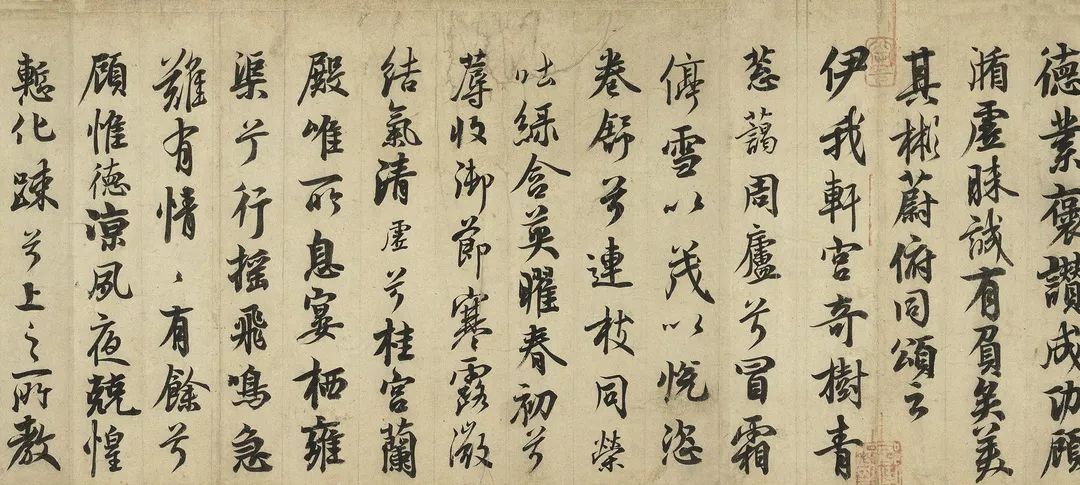 德業褒讚成功顧
循虛昧誠有負矣美
其彬蔚俯同頌云
伊我軒宮奇樹青
蔥藹周廬兮冒霜
停雪以茂以悅恣
卷舒兮連枝同榮
吐綠含英曜春初兮
蓐收御節寒露微
結氣清虛兮桂宮蘭
殿唯所息宴栖雍
渠兮行搖飛鳴急
難有情〻有餘兮
顧惟德涼夙夜兢惶
慙化疎兮上之所教